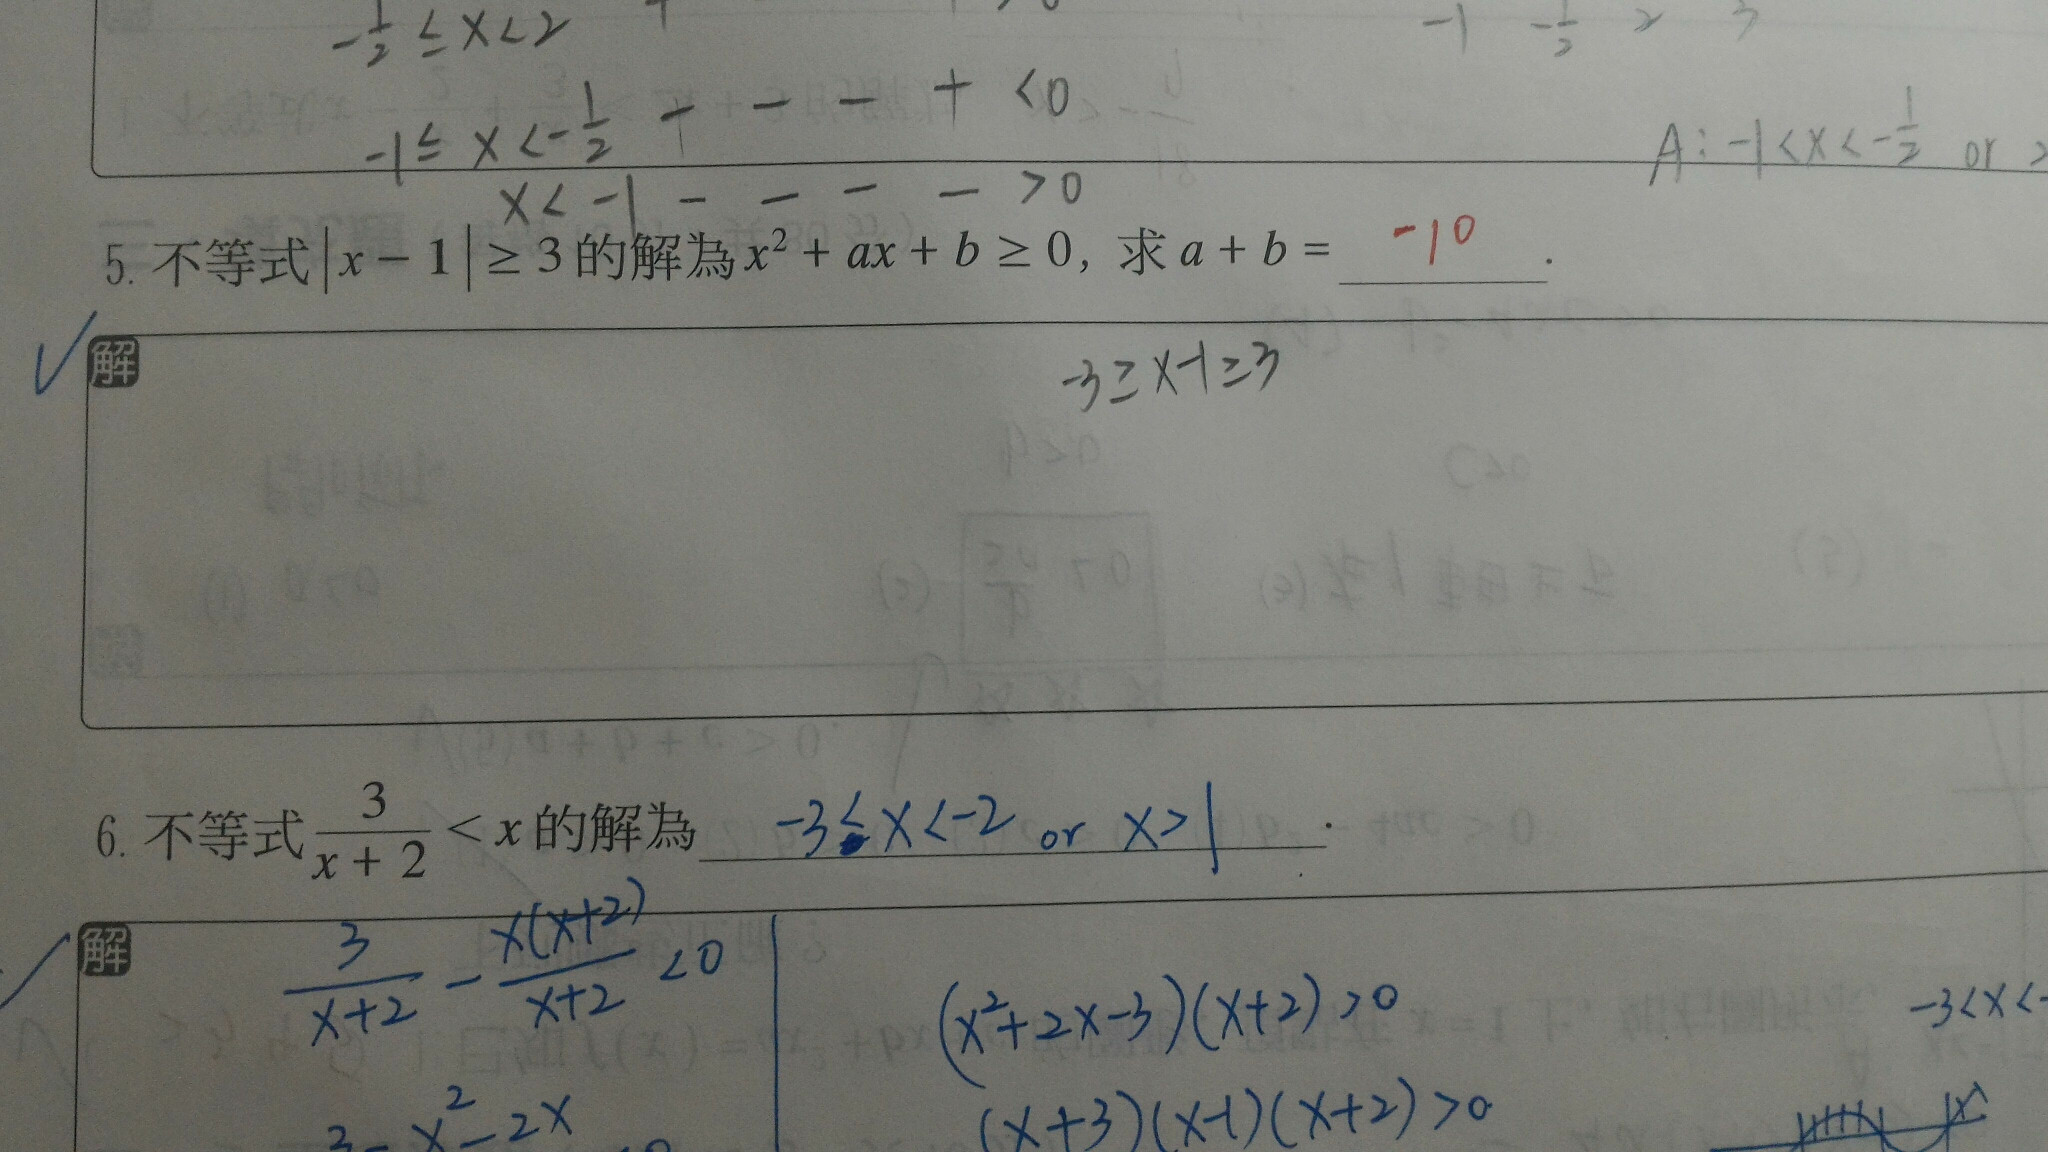 -1/2 ≤ x < 2
-1 -1/2 2 3
-1 ≤ x < -1/2 - - - + < 0
A: -1 < x < -1/2 or
x < -1 - - - - > 0
5. 不等式 |x - 1| ≥ 3 的解為 x² + ax + b ≥ 0, 求 a + b = -10 .
解
-3 ≥ x-1 ≥ 3
6. 不等式 3/(x + 2) < x 的解為 -3 < x < -2 or x > 1 .
解
3/(x+2) - x(x+2)/(x+2) < 0
(x²+2x-3)(x+2) > 0
-3 < x < -
3 - x² - 2x
(x+3)(x-1)(x+2) > 0